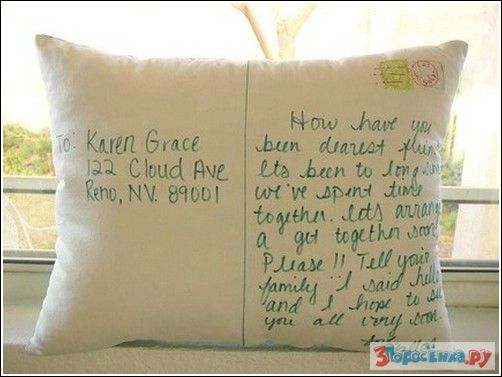 To: Karen Grace
122 Cloud Ave
Reno, NV. 89001
How have you
been dearest
Its been to long since
we've spent time
together. Lets arrange
a get together soon
Please!! Tell your
family I said hello
and I hope to see
you all very soon.
3Поросенка.ру